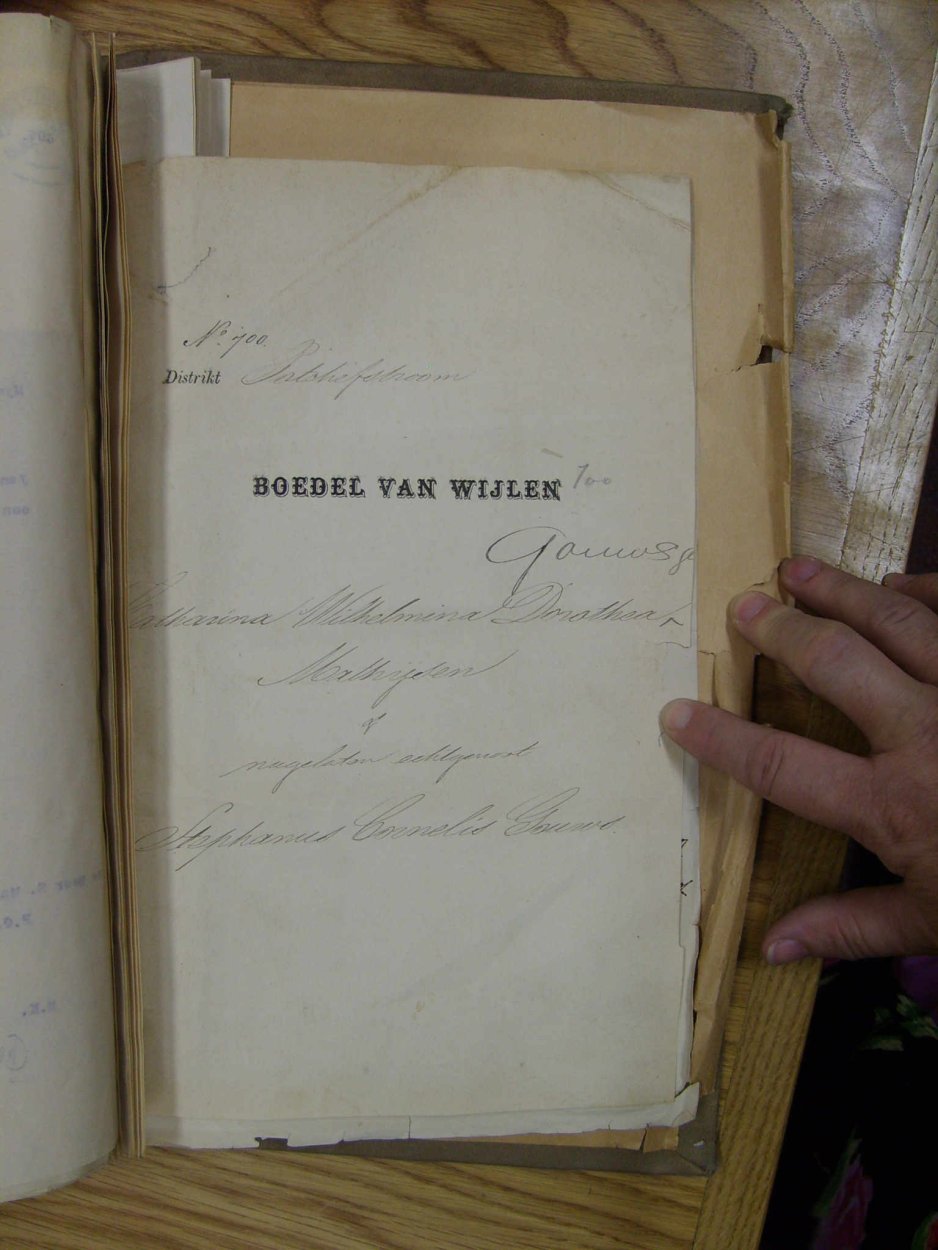 No. 700.
Distrikt Potchefstroom
BOEDEL VAN WIJLEN 700
Gouws g
Catharina Wilhelmina Dorothea
Mathysen
&
nagelaten echtgenoot
Stephanus Cornelis Gouws.